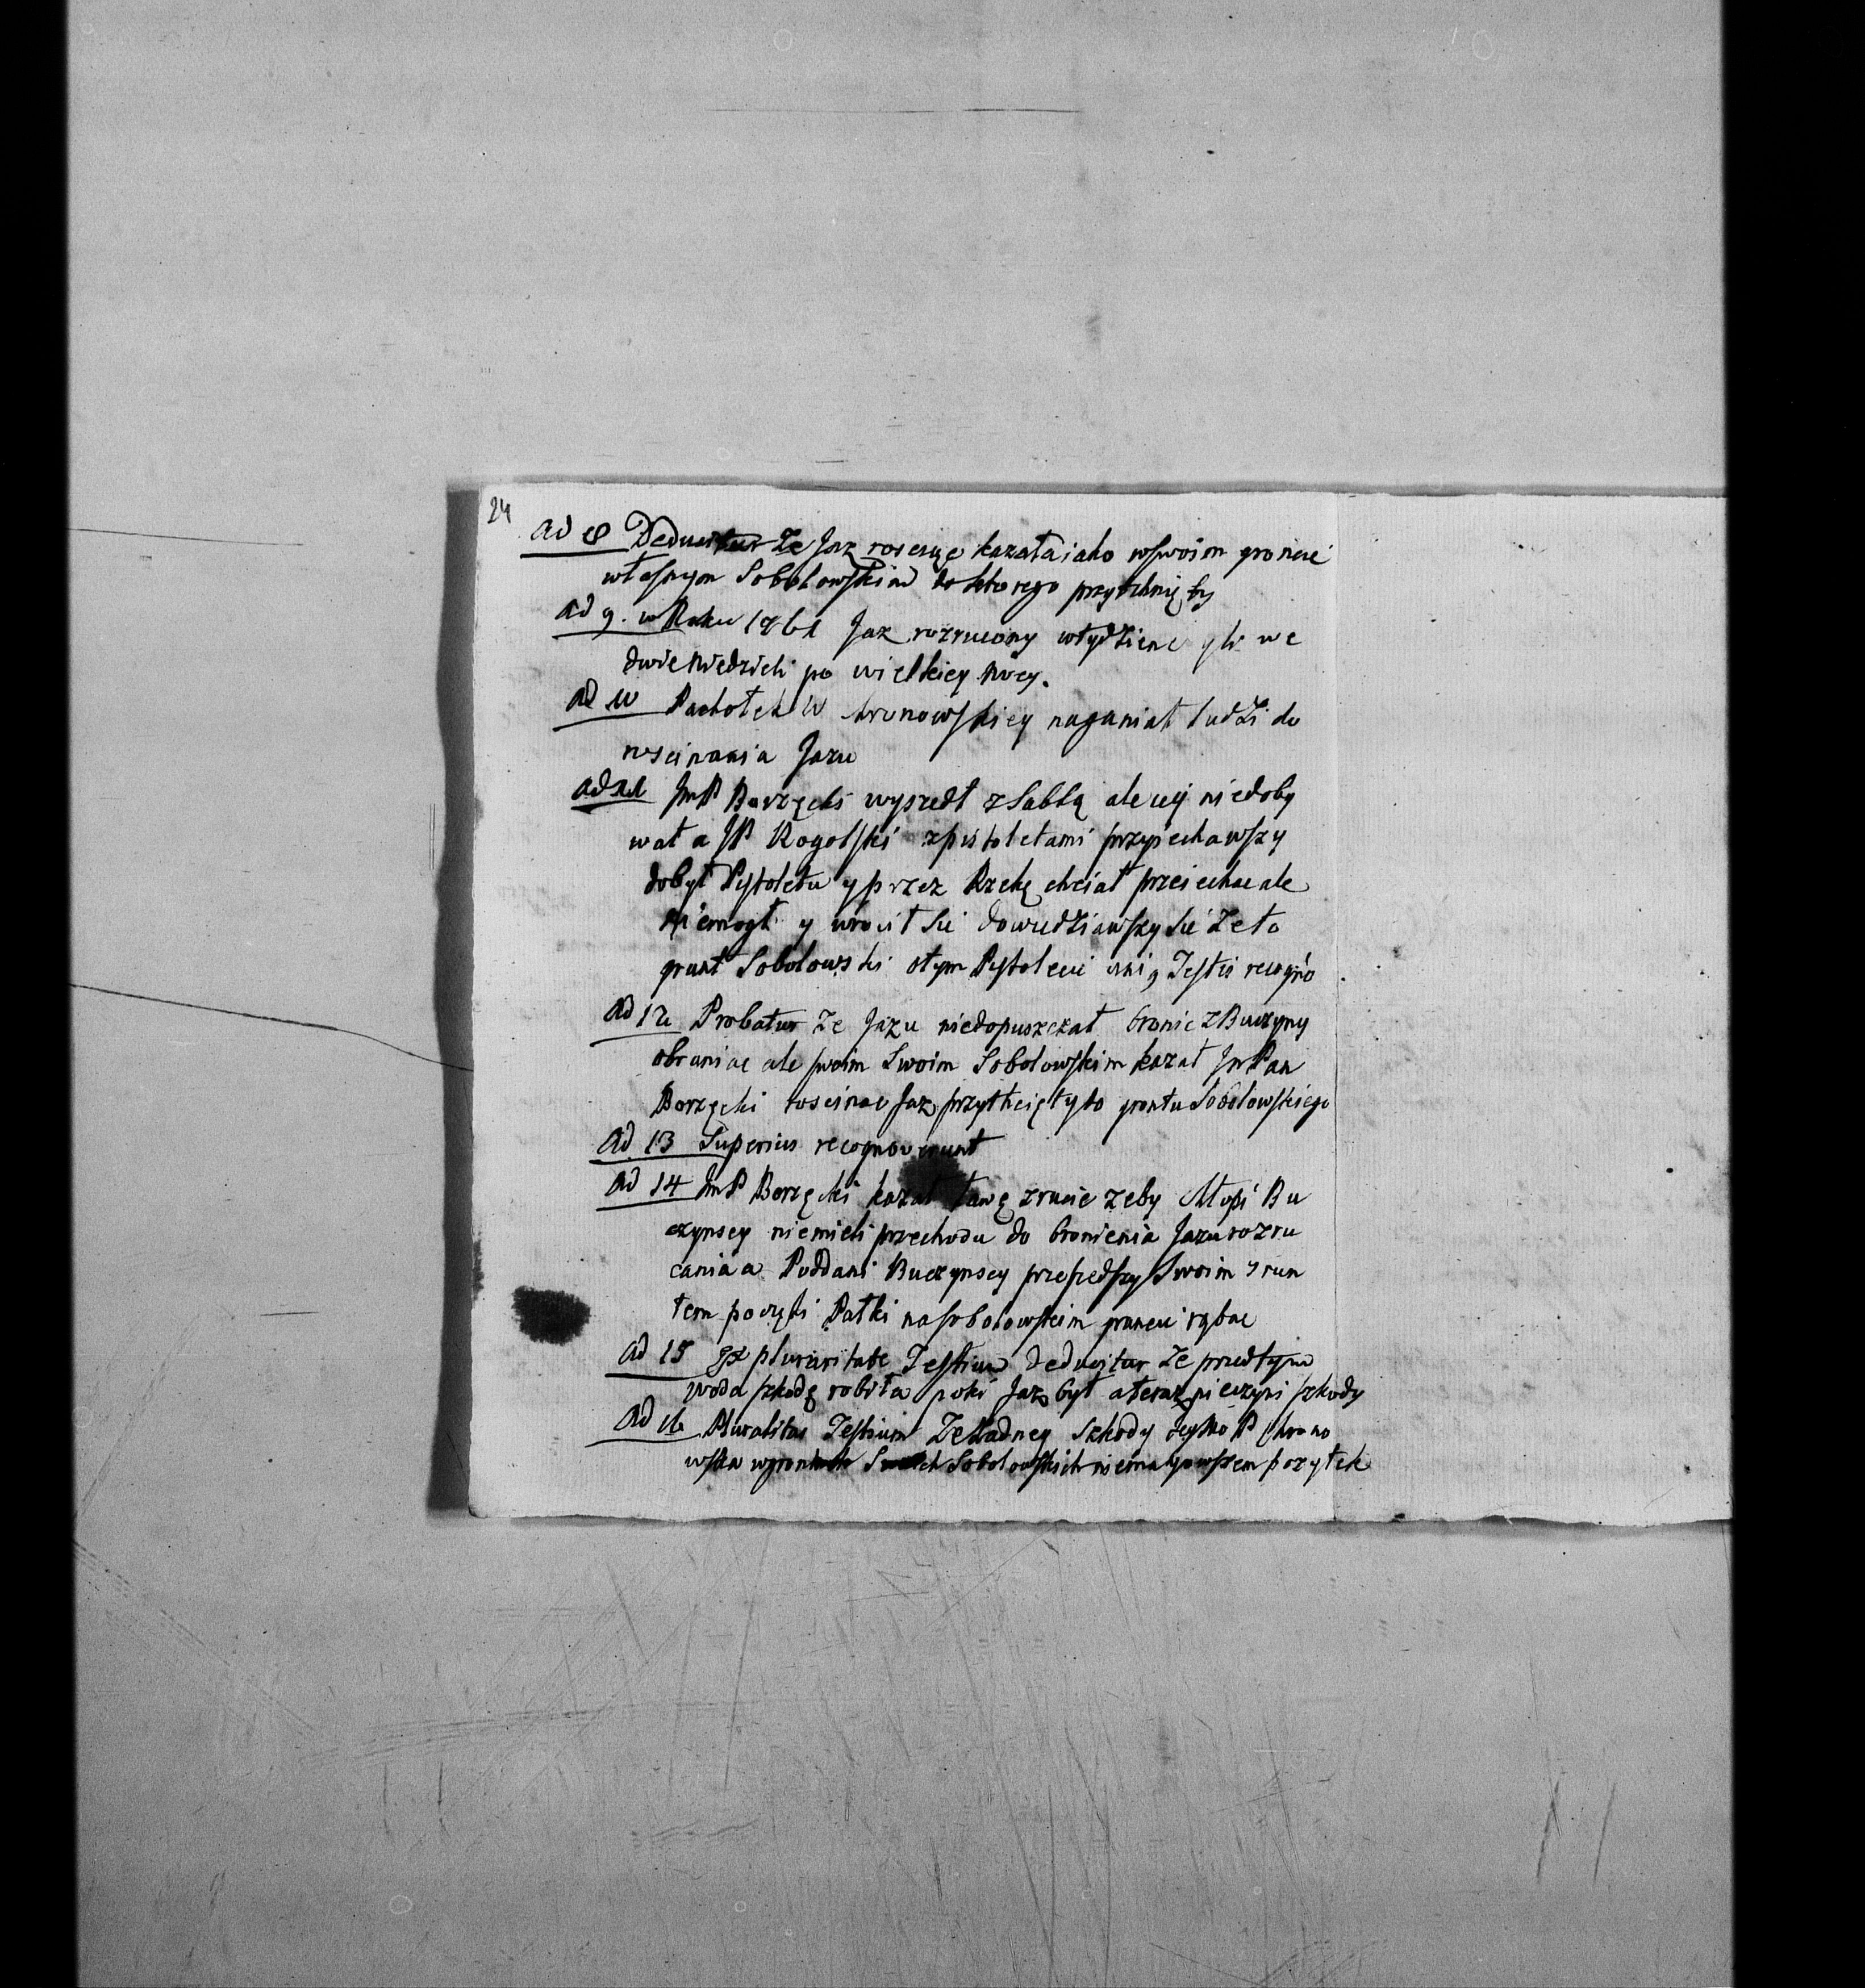 24
ad 8 Deducitur Ze Jaz rosciąc kazała iako w swoim groncie
własnym Sobolowskim do ktorego przytchnięty
ad 9. w Roku 1761 Jaz rozrucony w tydzien y li we
dwie Niedzieli po wielkiey Nocy.
ad 10 Pachołek W Chronowskiey naganiał ludzi do
roscinania Jazu
ad 11 ImP Borzęcki wyszedł z Sablą ale iey niedoby
wał a JP Rogolski z pistoletami przyiechawszy
dobył Pistoletu y przez Rzekę chciał przeiechac ale
niemogł y wrocił sie dowiedziawszy sie Ze to
grunt Sobolowski o tym Pistolecie Testis recogno
ad 12 Probatur Ze Jazu niedopuszczał bronic z Buczyny
obraniac ale swoim Swoim Sobolowskim kazał ImPan
Borzęcki roscinac Jaz przytkcięty do grontu Sobolowskiego
ad 13 Superius recognoverunt
ad 14 ImP Borzęcki kazał ławę zrucic zeby Chłopi Bu
czynscy niemieli przechodu do bronienia Jazu rozru
cania a Poddani Buczynscy przeszedszy Swoim grun
tem poczęli Palki na Sobolowskim groncie rąbac
ad 15 Ex pluraritate Testium deducitur Ze przedtym
woda szkodę robiła poki Jaz był a teraz nieczyni szkody
ad 16 Pluralitas Testium Ze Zadney Szkody P Chrono
wska w grontach Swoich Sobolowskich niema y owszem pozytek